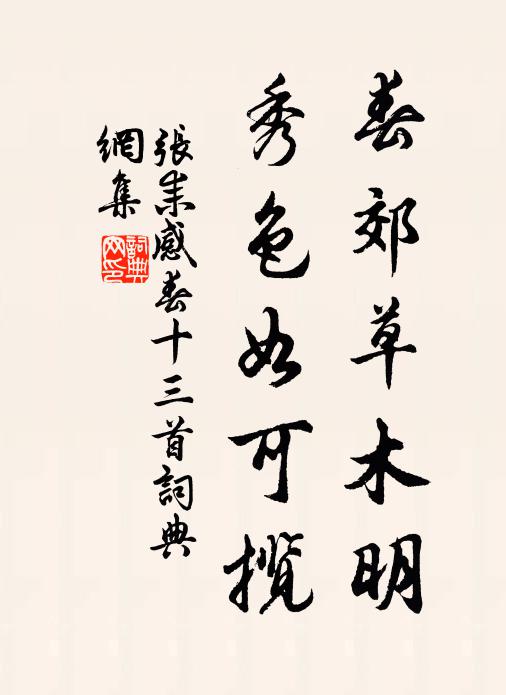 春郊草木明
秀色如可揽
張耒感春十三首詞典
網集
詞典
网印